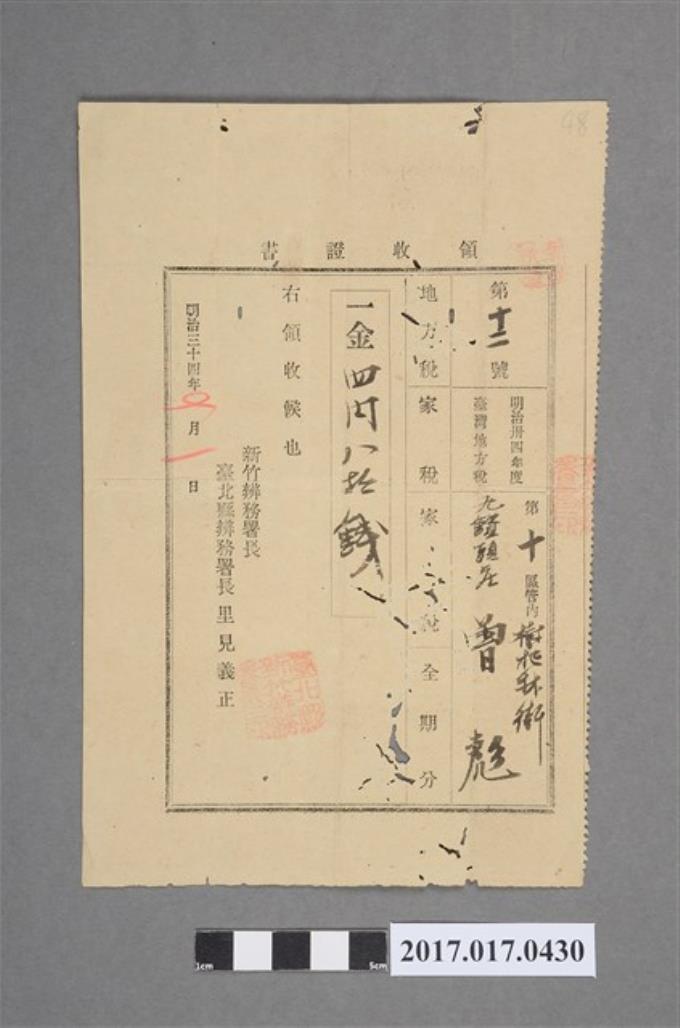 98
領收證書
第十二號
明治卅四年度
臺灣地方稅
第十區管内 樹杞林街
九鑽頭庄
曾彪
地方稅 家稅 家 稅 全期分
一金四円八拾錢
右領收候也
新竹辨務署長
臺北縣辨務署長里見義正
明治三十四年 五月 一日
1cm
5cm
2017.017.0430